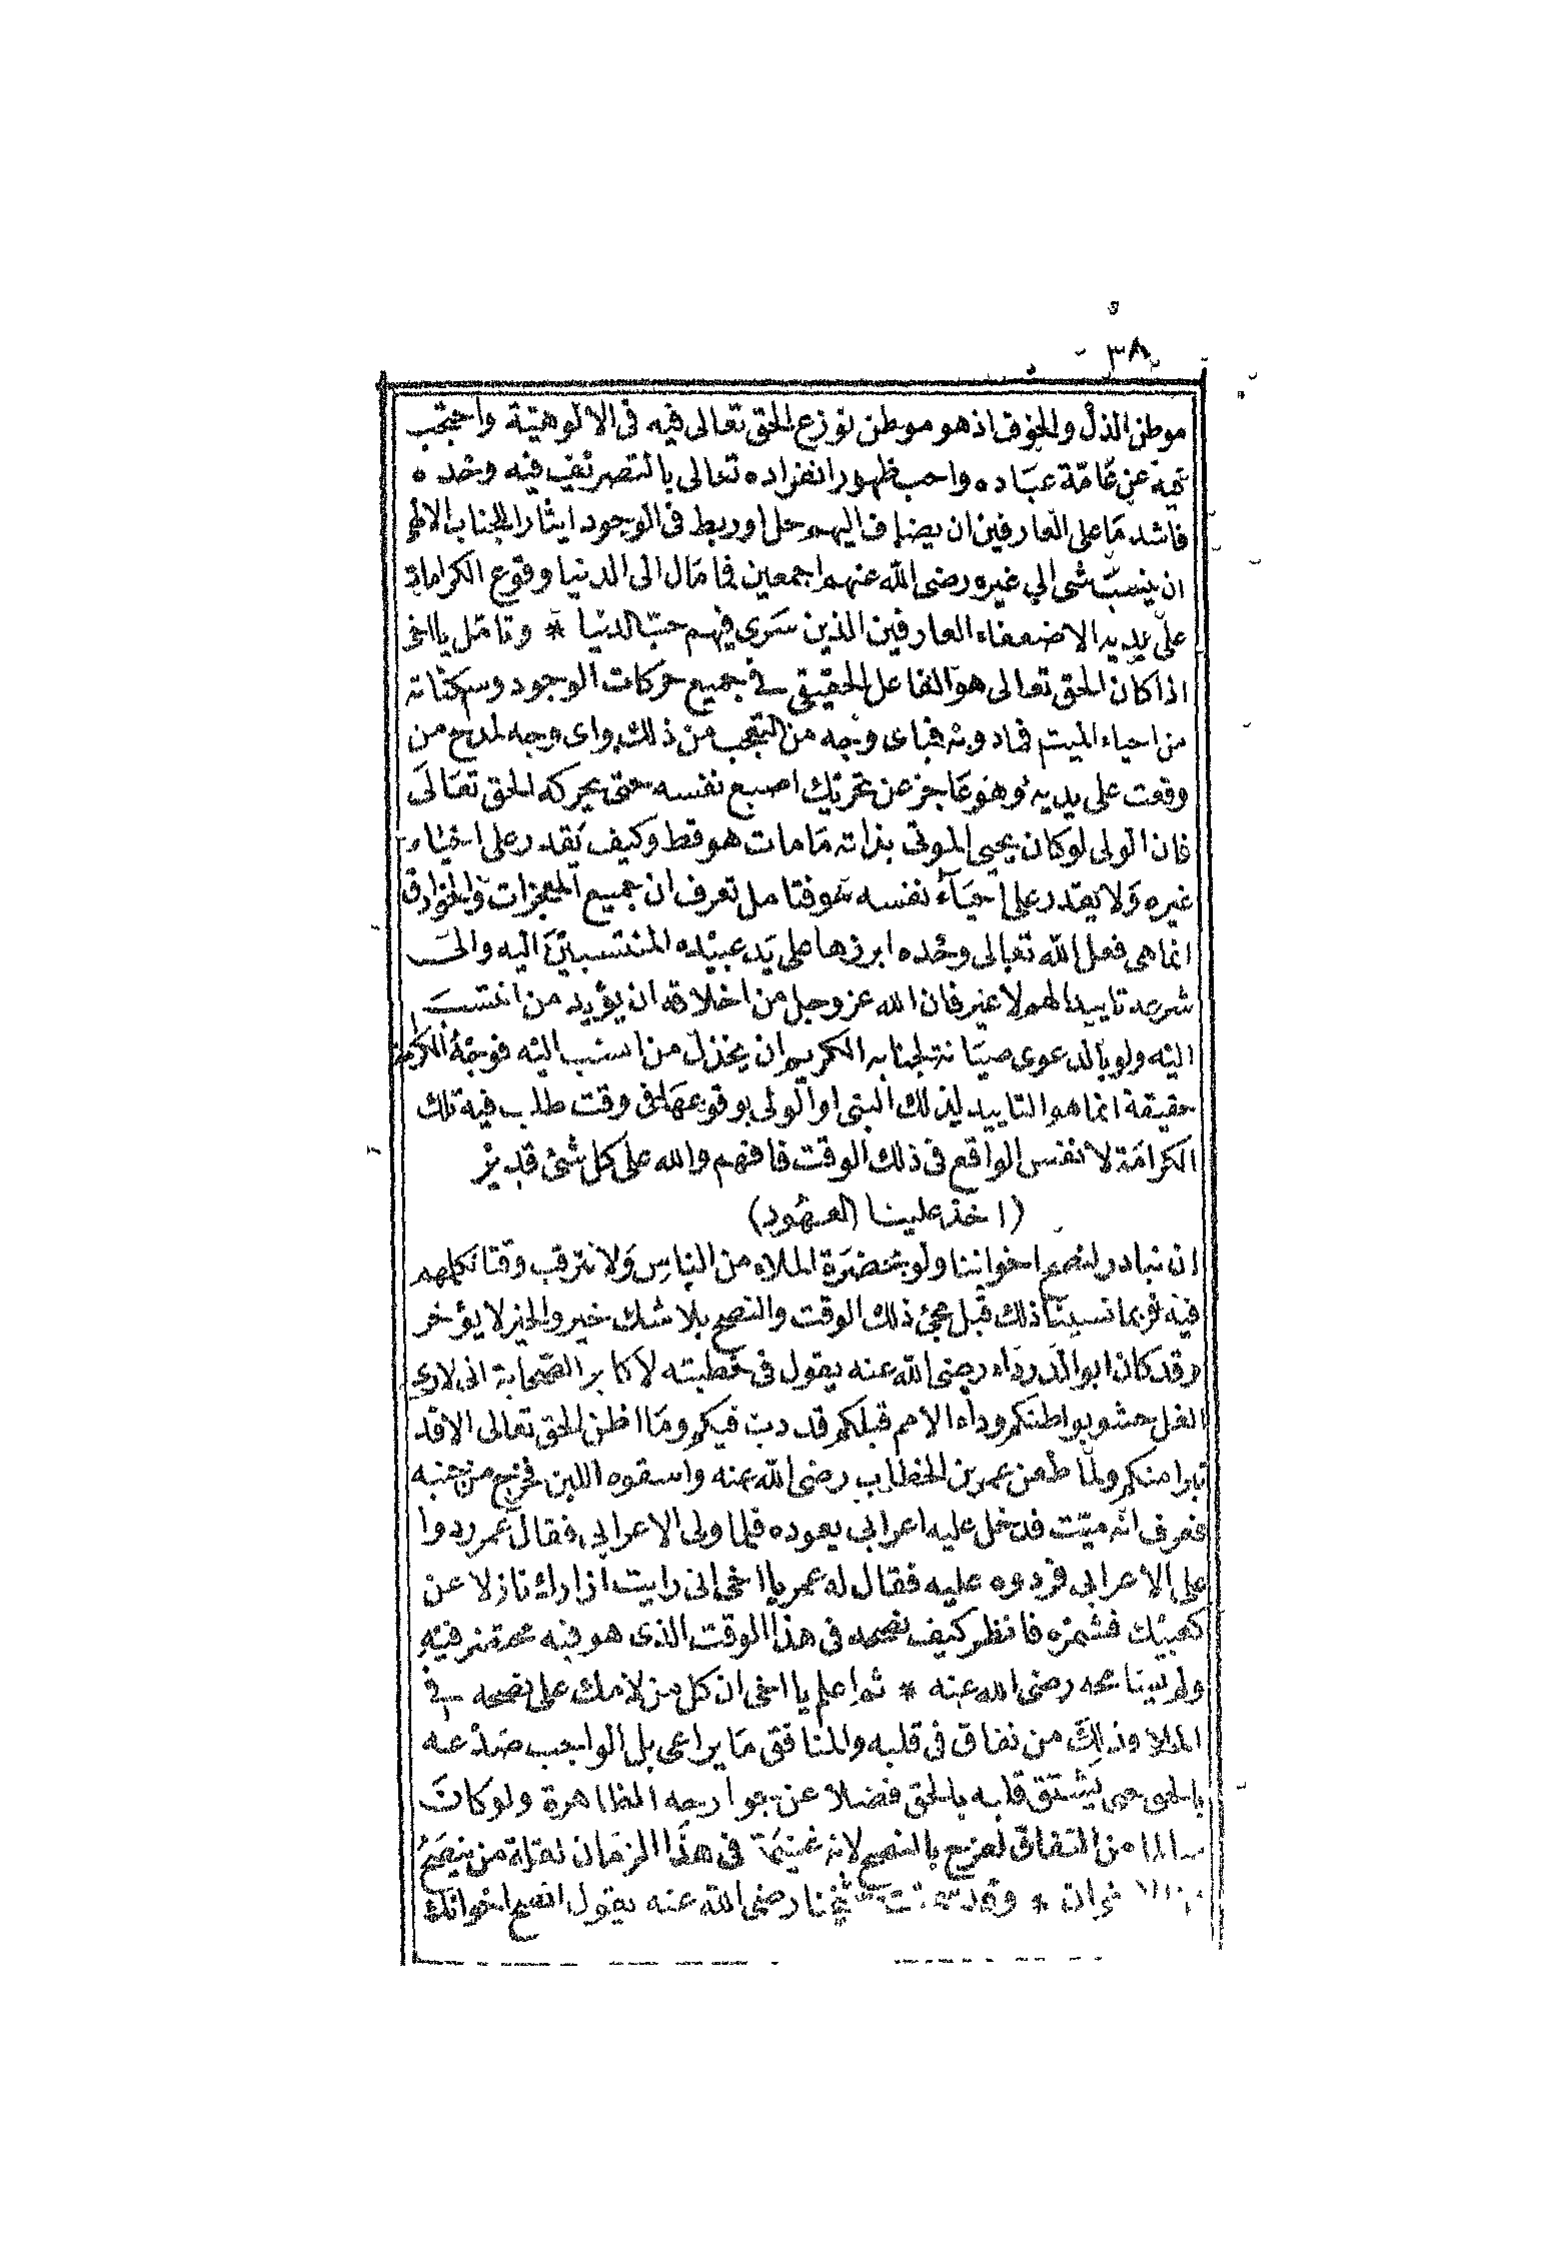 ٣٨
موطن الذل والخوف اذ هو موطن نوزع الحق تعالى فيه فى الالوهية واحتجب
فيه عن عامّة عباده واحب ظهور انفراده تعالى بالتصريف فيه وحده
فاشد ما على العارفين ان يضاف اليهم حل او ربط فى الوجود ايثارا للجناب الالهى
ان ينسب شى الي غيره رضى الله عنهم اجمعين فما مال الى الدنيا وقوع الكرامات
على يديه الا ضعفاء العارفين الذين سرى فيهم حبّ الدنيا * وتامّل يا اخى
اذا كان الحق تعالى هو الفاعل الحقيقى فى جميع حركات الوجود وسكناته
من احياء الميت فما دونه فباى وجه من التعجب من ذلك واى وجه لمدح من
وقعت على يديه وهو عاجز عن تحريك اصبع نفسه حتى يحركه الحق تعالى
فان الولى لو كان يحيى الموتى بذاته ما مات هو قط وكيف يقدر على احياء
غيره ولا يقدر على احياء نفسه هو فتامل تعرف ان جميع المعجزات والخوارق
انما هى فعل الله تعالى وحده ابرزها على يد عبيده المنتسبين اليه والى
شرعه تاييدا لهم لا غير فان الله عز وجل من اخلاقه ان يؤيد من انتسب
اليه ولو بالدعوى صيانة لجنابه الكريم ان يخذل من انتسب اليه فوجه الكرامة
حقيقة انما هو التاييد لذلك النبى او الولى بوقوعها فى وقت طلب فيه تلك
الكرامة لا نفس الواقع فى ذلك الوقت فافهم والله على كل شئ قدير
(اخذ علينا العهود)
ان نبادر لنصح اخواننا ولو بحضرة الملاء من الناس ولا نترقب وقتا نكلمهم
فيه فربما نسينا ذلك قبل مجئ ذلك الوقت والنصح بلا شك خير والخير لا يؤخر
وقد كان ابو الدرداء رضى الله عنه يقول فى خطبته لاكابر الصحابة انى لارى
الغل حشو بواطنكم وداء الامم قبلكم قد دب فيكم وما اظن الحق تعالى الا قد
تبرا منكم ولما طعن عمر بن الخطاب رضى الله عنه واسقوه اللبن فخرج من جنبه
فعرف انه ميت فدخل عليه اعرابى يعوده فلما ولى الاعرابى فقال عمر ردوا
على الاعرابى فردوه عليه فقال له عمر يا اخى انى رايت ازارك نازلا عن
كعبيك فشمره فانظر كيف نصحه فى هذا الوقت الذى هو فيه محتضر فيه
ولم يسامحه رضى الله عنه * ثم اعلم يا اخى ان كل من لامك على نصحه فى
الملا وذلك من نفاق فى قلبه والمنافق ما يراعى بل الواجب صدعه
بالحق حتى يشتق قلبه بالحق فضلا عن جوارحه الظاهرة ولو كان
سالما من النفاق لفرح بالنصح لانه غنيمة فى هذا الزمان لقلة من ينصح
من الاخوان * وقد سمعت شيخنا رضى الله عنه يقول انصح اخوانك